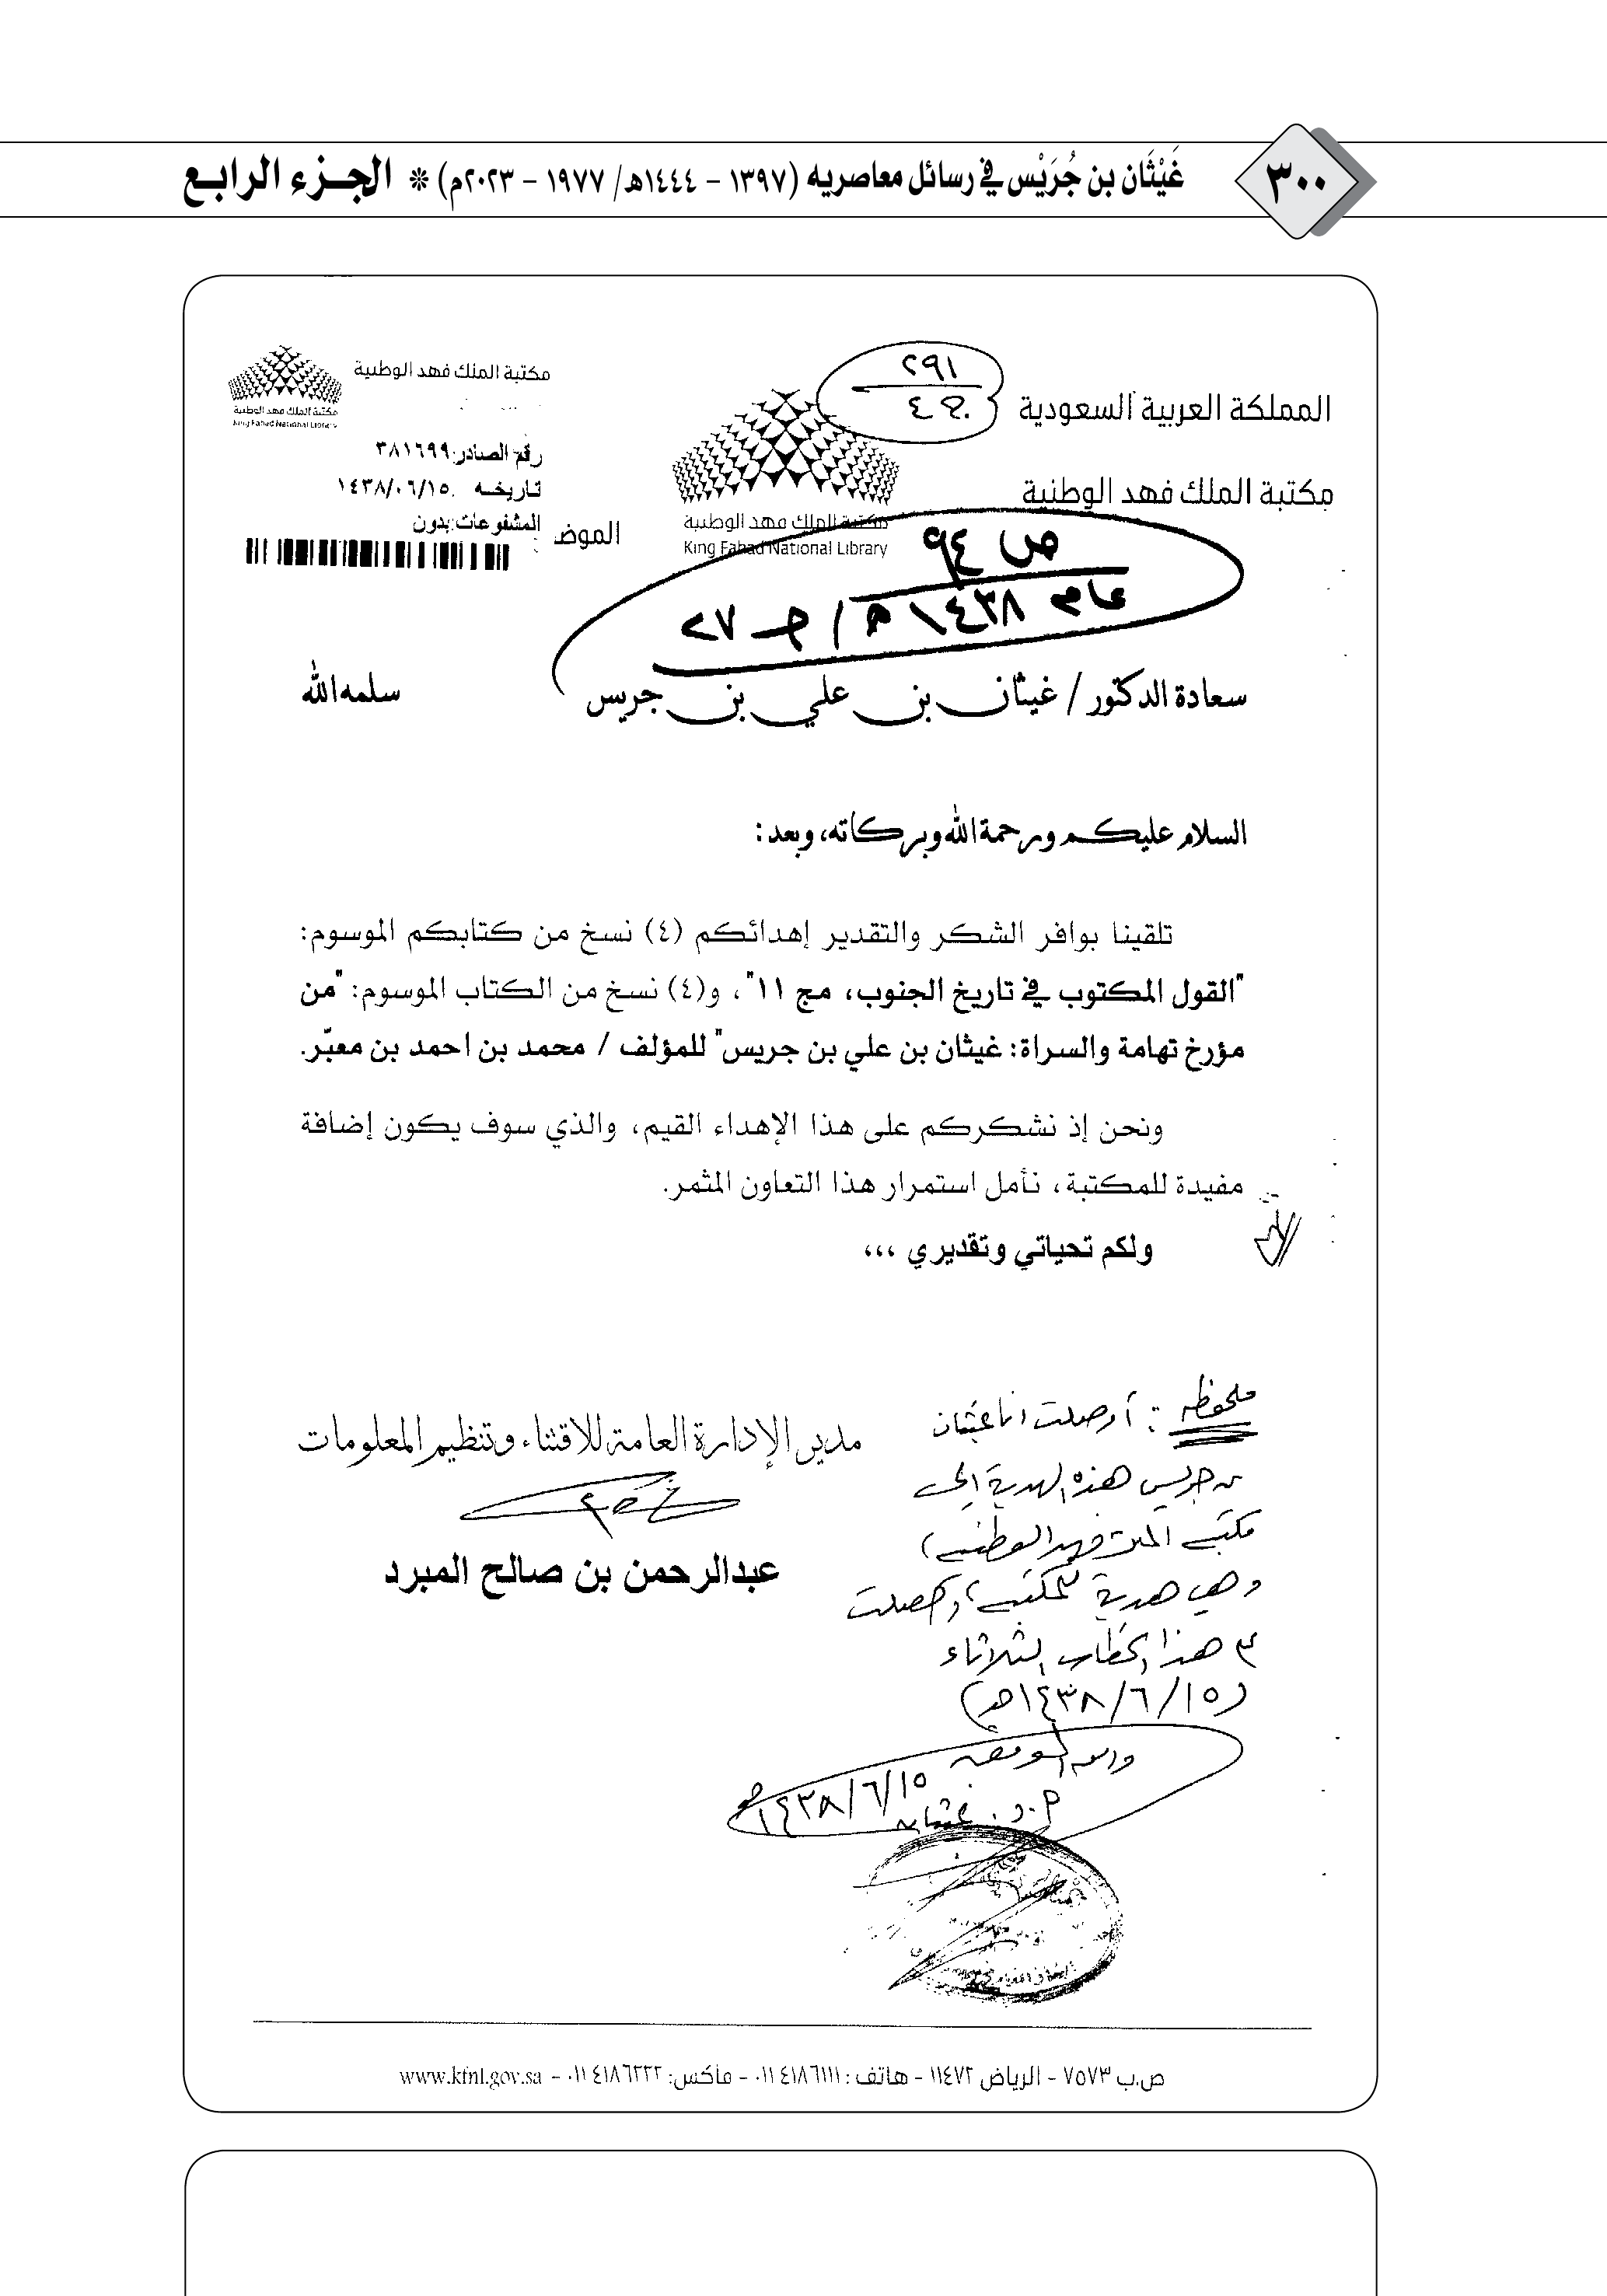 ٣٠٠
غَيْثَان بن جُرَيْس في رسائل معاصريه (١٣٩٧ – ١٤٤٤هـ/ ١٩٧٧ – ٢٠٢٣م) * الجـزء الرابـع
المملكة العربية السعودية
مكتبة الملك فهد الوطنية
٢٩١
مكتبة الملك فهد الوطنية
King Fahad National Library
مكتبة الملك فهد الوطنية
مكتبة الملك فهد الوطنية
King Fahad National Library
رقم الصادر: ٣٨١٦٩٩
تاريخه ١٤٣٨/٠٦/١٥
المشفوعات: بدون
الموض
ص ٩٤
عام ١٤٣٨ هـ / جـ ٢٧
سعادة الدكتور / غيثان بن علي بن جريس سلمه الله
السلام عليكم ورحمة الله وبركاته، وبعد:
تلقينا بوافر الشكر والتقدير إهدائكم (٤) نسخ من كتابكم الموسوم:
"القول المكتوب في تاريخ الجنوب، مج ١١"، و(٤) نسخ من الكتاب الموسوم: "من
مؤرخ تهامة والسراة: غيثان بن علي بن جريس" للمؤلف / محمد بن احمد بن معبّر.
ونحن إذ نشكركم على هذا الإهداء القيم، والذي سوف يكون إضافة
مفيدة للمكتبة، نأمل استمرار هذا التعاون المثمر.
ولكم تحياتي وتقديري ،،،
مدير الإدارة العامة للاقتناء وتنظيم المعلومات
عبدالرحمن بن صالح المبرد
ملحوظة : أرسلت انا غيثان
بن جريس هذه الهدية إلى
مكتبة الملك فهد الوطنية
وهي هدية للمكتبة،
هذا الخطاب الثلاثاء
(١٥/٦/١٤٣٨هـ)
والله الموفق
أ.د. غيثان ١٥/٦/١٤٣٨هـ
ص.ب ٧٥٧٣ - الرياض ١١٤٧٢ - هاتف : ٠١١٤١٨٦١١١ - فاكس: ٠١١٤١٨٦٢٢٢ - www.kfnl.gov.sa